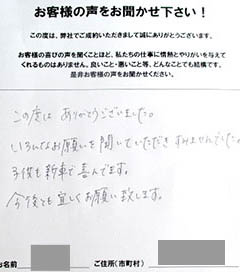 お客様の声をお聞かせ下さい！
この度は、弊社でご成約いただきまして誠にありがとうございます。
お客様の喜びの声を聞くことほど、私たちの仕事に情熱とやりがいを与えて
くれるものはありません。良いこと・悪いこと等、どんなことでも結構です。
是非お客様の声をお聞かせください。
この度は ありがとうございました。
いろんなお願いを聞いていただき すみませんでした。
子供も新車で喜んでます。
今後とも宜しくお願い致します。
お名前 ご住所(市町村)